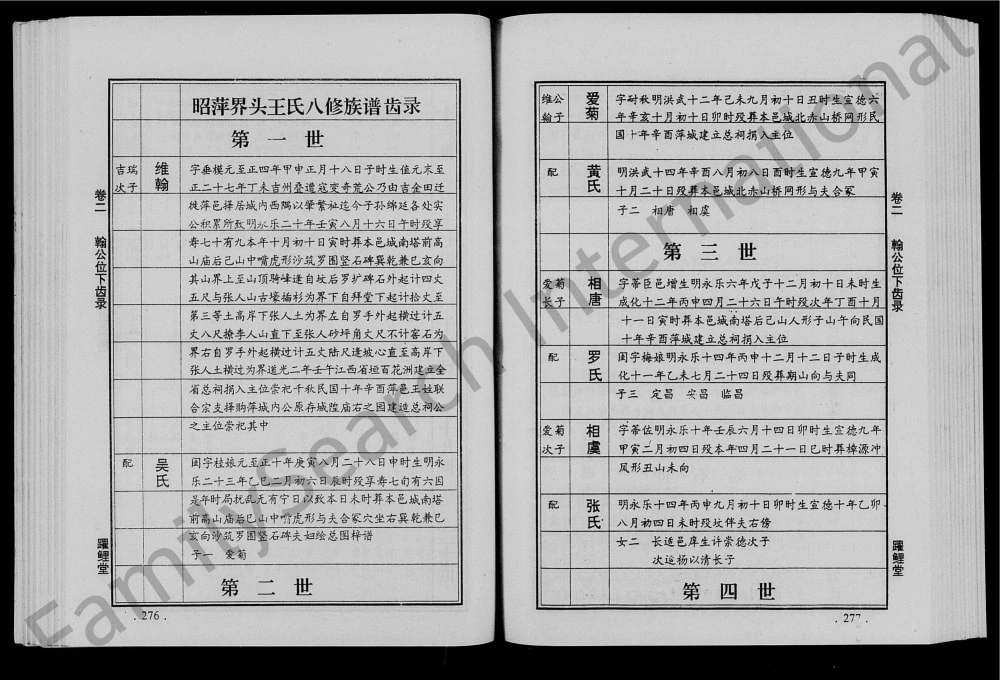 昭萍界头王氏八修族谱齿录
第一世
吉瑞次子
维翰
字垂模元至正四年甲申正月十八日子时生值元末至
正二十七年丁未吉州叠遭寇变奇荒公乃由吉金田迁
徙萍邑择居城内西隅以肇繁祉迄今子孙绵延各处实
公积累所致明永乐二十年壬寅八月十六日午时殁享
寿七十有九本年十月初十日寅时葬本邑城南塔前高
山庙后己山中嘴虎形沙筑罗围竖石碑冥乾兼巳亥向
其山界上至山顶骑峰逢自坟后罗扩碑石外起计四丈
五尺与张人山古壕插杉为界下自拜堂下起计拾丈至
第三等土高岸下张人土为界左自罗手外起横过计五
丈八尺撩李人山直下至张人砂坪角丈尺不计窖石为
界右自罗手外起横过计五丈陆尺逢坡心直至高岸下
张人土横过为界道光二年壬午江西省垣百花洲建立全
省总祠捐入主位崇祀千秋民国十年辛酉萍邑王姓联
合宗支择购萍城内公原存城隍庙右之园建造总祠公
之主位崇祀其中
配
吴氏
闺字桂娘元至正十年庚寅八月二十八日申时生明永
乐二十三年乙巳二月初六日辰时殁享寿七旬有六因
是年时局扰乱无有宁日以致本日未时葬本邑城南塔
前高山庙后己山中嘴虎形与夫合冢穴坐右巽乾兼巳
亥向沙筑罗围竖石碑夫妇绘总图梓谱
子一 爱菊
第二世
卷二 翰公位下齿录
躍鲤堂
. 276 .
维翰公子
爱菊
字耐秋明洪武十二年己未九月初十日丑时生宣德六
年辛亥十月初十日卯时殁葬本邑城北赤山桥网形民
国十年辛酉萍城建立总祠捐入主位
配
黄氏
明洪武十四年辛酉八月初八日酉时生宣德九年甲寅
十月二十日殁葬本邑城北赤山桥网形与夫合冢
子二 相唐 相虞
第三世
爱菊长子
相唐
字蒂臣邑增生明永乐六年戊子十二月初十日未时生
成化十二年丙申四月二十六日午时殁次年丁酉十月
十一日寅时葬本邑城南塔后己山人形子山午向民国
十年辛酉萍城建立总祠捐入主位
配
罗氏
闺字梅娘明永乐十四年丙申十二月十二日子时生成
化十一年乙未七月二十四日殁葬期山向与夫同
子三 定昌 安昌 临昌
爱菊次子
相虞
字蒂佐明永乐十年壬辰六月十四日卯时生宣德九年
甲寅二月初四日殁本年四月二十一日巳时葬樟源冲
凤形丑山未向
配
张氏
明永乐十四年丙申九月初十日卯时生宣德十年乙卯
八月初四日未时殁坟伴夫右傍
女二 长适邑庠生许崇德次子
次适杨以清长子
第四世
卷二 翰公位下齿录
躍鲤堂
. 277 .
FamilySearch International